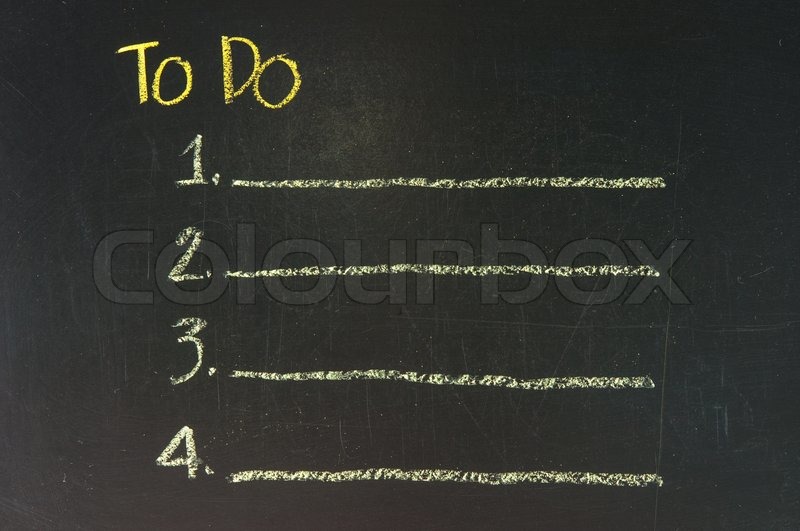 To Do
1.
2.
3.
4.
Colourbox